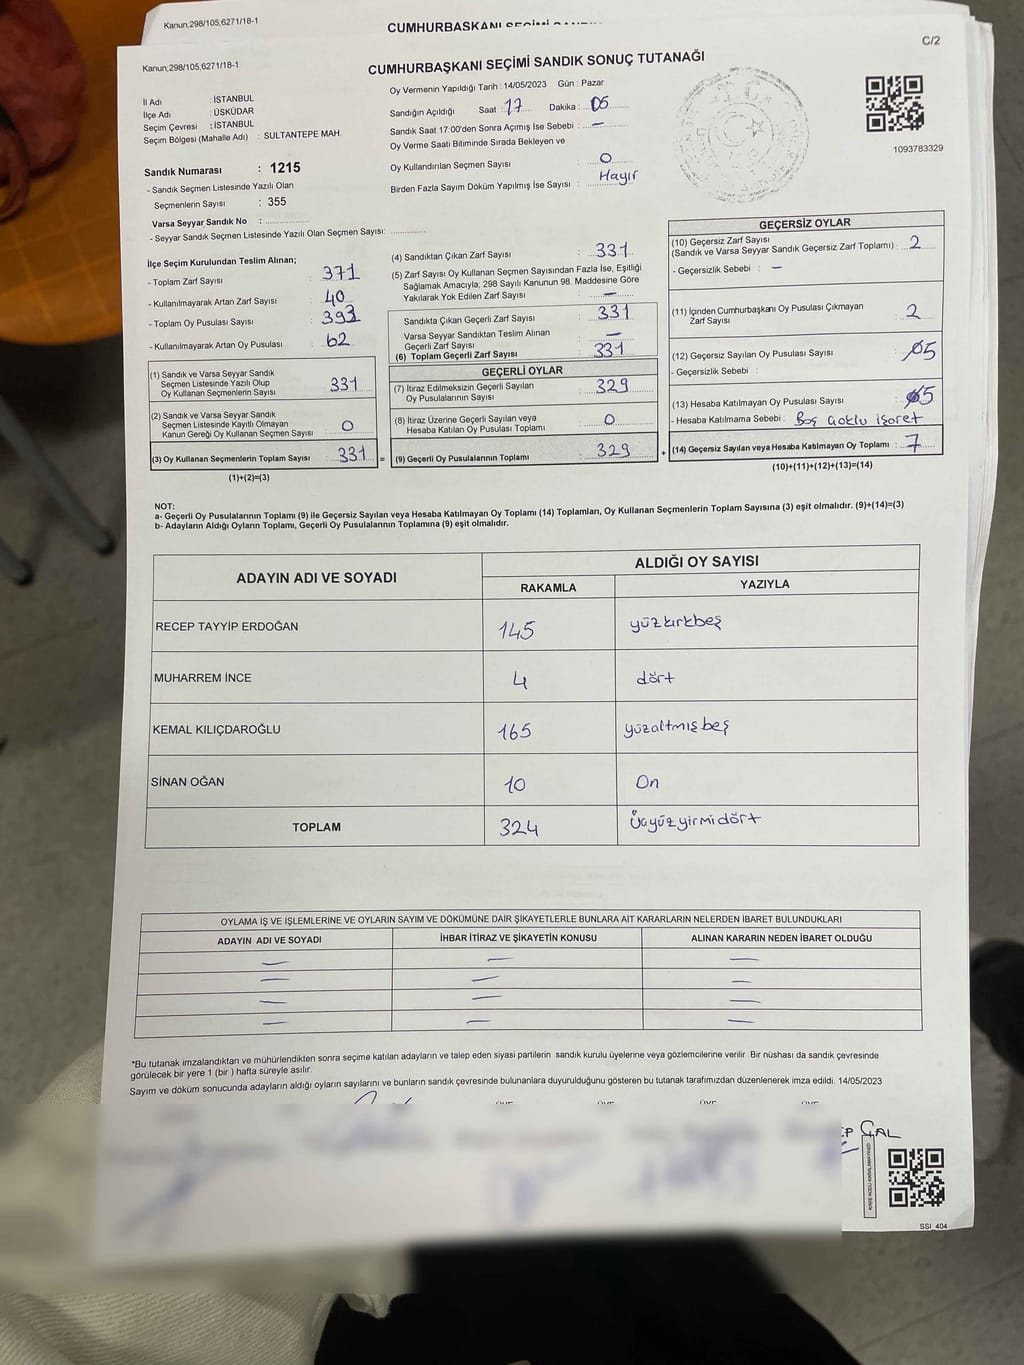 Kanun,298/105,6271/18-1
CUMHURBAŞKANI SEÇİMİ
Kanun,298/105,6271/18-1
C/2
CUMHURBAŞKANI SEÇİMİ SANDIK SONUÇ TUTANAĞI
İl Adı : İSTANBUL
İlçe Adı : ÜSKÜDAR
Seçim Çevresi : İSTANBUL
Seçim Bölgesi (Mahalle Adı) : SULTANTEPE MAH.
Sandık Numarası : 1215
- Sandık Seçmen Listesinde Yazılı Olan
Seçmenlerin Sayısı : 355
Varsa Seyyar Sandık No :
- Seyyar Sandık Seçmen Listesinde Yazılı Olan Seçmen Sayısı:
Oy Vermenin Yapıldığı Tarih : 14/05/2023 Gün : Pazar
Sandığın Açıldığı Saat : 17 Dakika : 05
Sandık Saat 17:00'den Sonra Açımış İse Sebebi : —
Oy Verme Saati Bitiminde Sırada Bekleyen ve
Oy Kullandırılan Seçmen Sayısı : 0
Birden Fazla Sayım Döküm Yapılmış İse Sayısı : Hayır
1093783329
İlçe Seçim Kurulundan Teslim Alınan;
- Toplam Zarf Sayısı : 371
- Kullanılmayarak Artan Zarf Sayısı : 40
- Toplam Oy Pusulası Sayısı : 393
- Kullanılmayarak Artan Oy Pusulası : 62
(1) Sandık ve Varsa Seyyar Sandık
Seçmen Listesinde Yazılı Olup
Oy Kullanan Seçmenlerin Sayısı : 331
(2) Sandık ve Varsa Seyyar Sandık
Seçmen Listesinde Kayıtlı Olmayan
Kanun Gereği Oy Kullanan Seçmen Sayısı : 0
(3) Oy Kullanan Seçmenlerin Toplam Sayısı : 331 =
(1)+(2)=(3)
(4) Sandıktan Çıkan Zarf Sayısı : 331
(5) Zarf Sayısı Oy Kullanan Seçmen Sayısından Fazla İse, Eşitliği
Sağlamak Amacıyla, 298 Sayılı Kanunun 98. Maddesine Göre
Yakılarak Yok Edilen Zarf Sayısı : —
Sandıkta Çıkan Geçerli Zarf Sayısı : 331
Varsa Seyyar Sandıktan Teslim Alınan
Geçerli Zarf Sayısı : —
(6) Toplam Geçerli Zarf Sayısı : 331
GEÇERLİ OYLAR
(7) İtiraz Edilmeksizin Geçerli Sayılan
Oy Pusulalarının Sayısı : 329
(8) İtiraz Üzerine Geçerli Sayılan veya
Hesaba Katılan Oy Pusulası Toplamı : 0
(9) Geçerli Oy Pusulalarının Toplamı : 329 +
GEÇERSİZ OYLAR
(10) Geçersiz Zarf Sayısı
(Sandık ve Varsa Seyyar Sandık Geçersiz Zarf Toplamı) : 2
- Geçersizlik Sebebi : —
(11) İçinden Cumhurbaşkanı Oy Pusulası Çıkmayan
Zarf Sayısı : 2
(12) Geçersiz Sayılan Oy Pusulası Sayısı : 05
- Geçersizlik Sebebi :
(13) Hesaba Katılmayan Oy Pusulası Sayısı : 5
- Hesaba Katılmama Sebebi : Boş çoklu işaret
(14) Geçersiz Sayılan veya Hesaba Katılmayan Oy Toplamı : 7
(10)+(11)+(12)+(13)=(14)
NOT:
a- Geçerli Oy Pusulalarının Toplamı (9) ile Geçersiz Sayılan veya Hesaba Katılmayan Oy Toplamı (14) Toplamları, Oy Kullanan Seçmenlerin Toplam Sayısına (3) eşit olmalıdır. (9)+(14)=(3)
b- Adayların Aldığı Oyların Toplamı, Geçerli Oy Pusulalarının Toplamına (9) eşit olmalıdır.
ADAYIN ADI VE SOYADI
ALDIĞI OY SAYISI
RAKAMLA YAZIYLA
RECEP TAYYİP ERDOĞAN 145 yüzkırkbeş
MUHARREM İNCE 4 dört
KEMAL KILIÇDAROĞLU 165 yüzaltmışbeş
SİNAN OĞAN 10 On
TOPLAM 324 Üçyüzyirmidört
OYLAMA İŞ VE İŞLEMLERİNE VE OYLARIN SAYIM VE DÖKÜMÜNE DAİR ŞİKAYETLERLE BUNLARA AİT KARARLARIN NELERDEN İBARET BULUNDUKLARI
ADAYIN ADI VE SOYADI İHBAR İTİRAZ VE ŞİKAYETİN KONUSU ALINAN KARARIN NEDEN İBARET OLDUĞU
— — —
— — —
— — —
— — —
*Bu tutanak imzalandıktan ve mühürlendikten sonra seçime katılan adayların ve talep eden siyasi partilerin sandık kurulu üyelerine veya gözlemcilerine verilir. Bir nüshası da sandık çevresinde
görülecek bir yere 1 (bir ) hafta süreyle asılır.
Sayım ve döküm sonucunda adayların aldığı oyların sayılarını ve bunların sandık çevresinde bulunanlara duyurulduğunu gösteren bu tutanak tarafımızdan düzenlenerek imza edildi. 14/05/2023
ÇAL
SSI_404